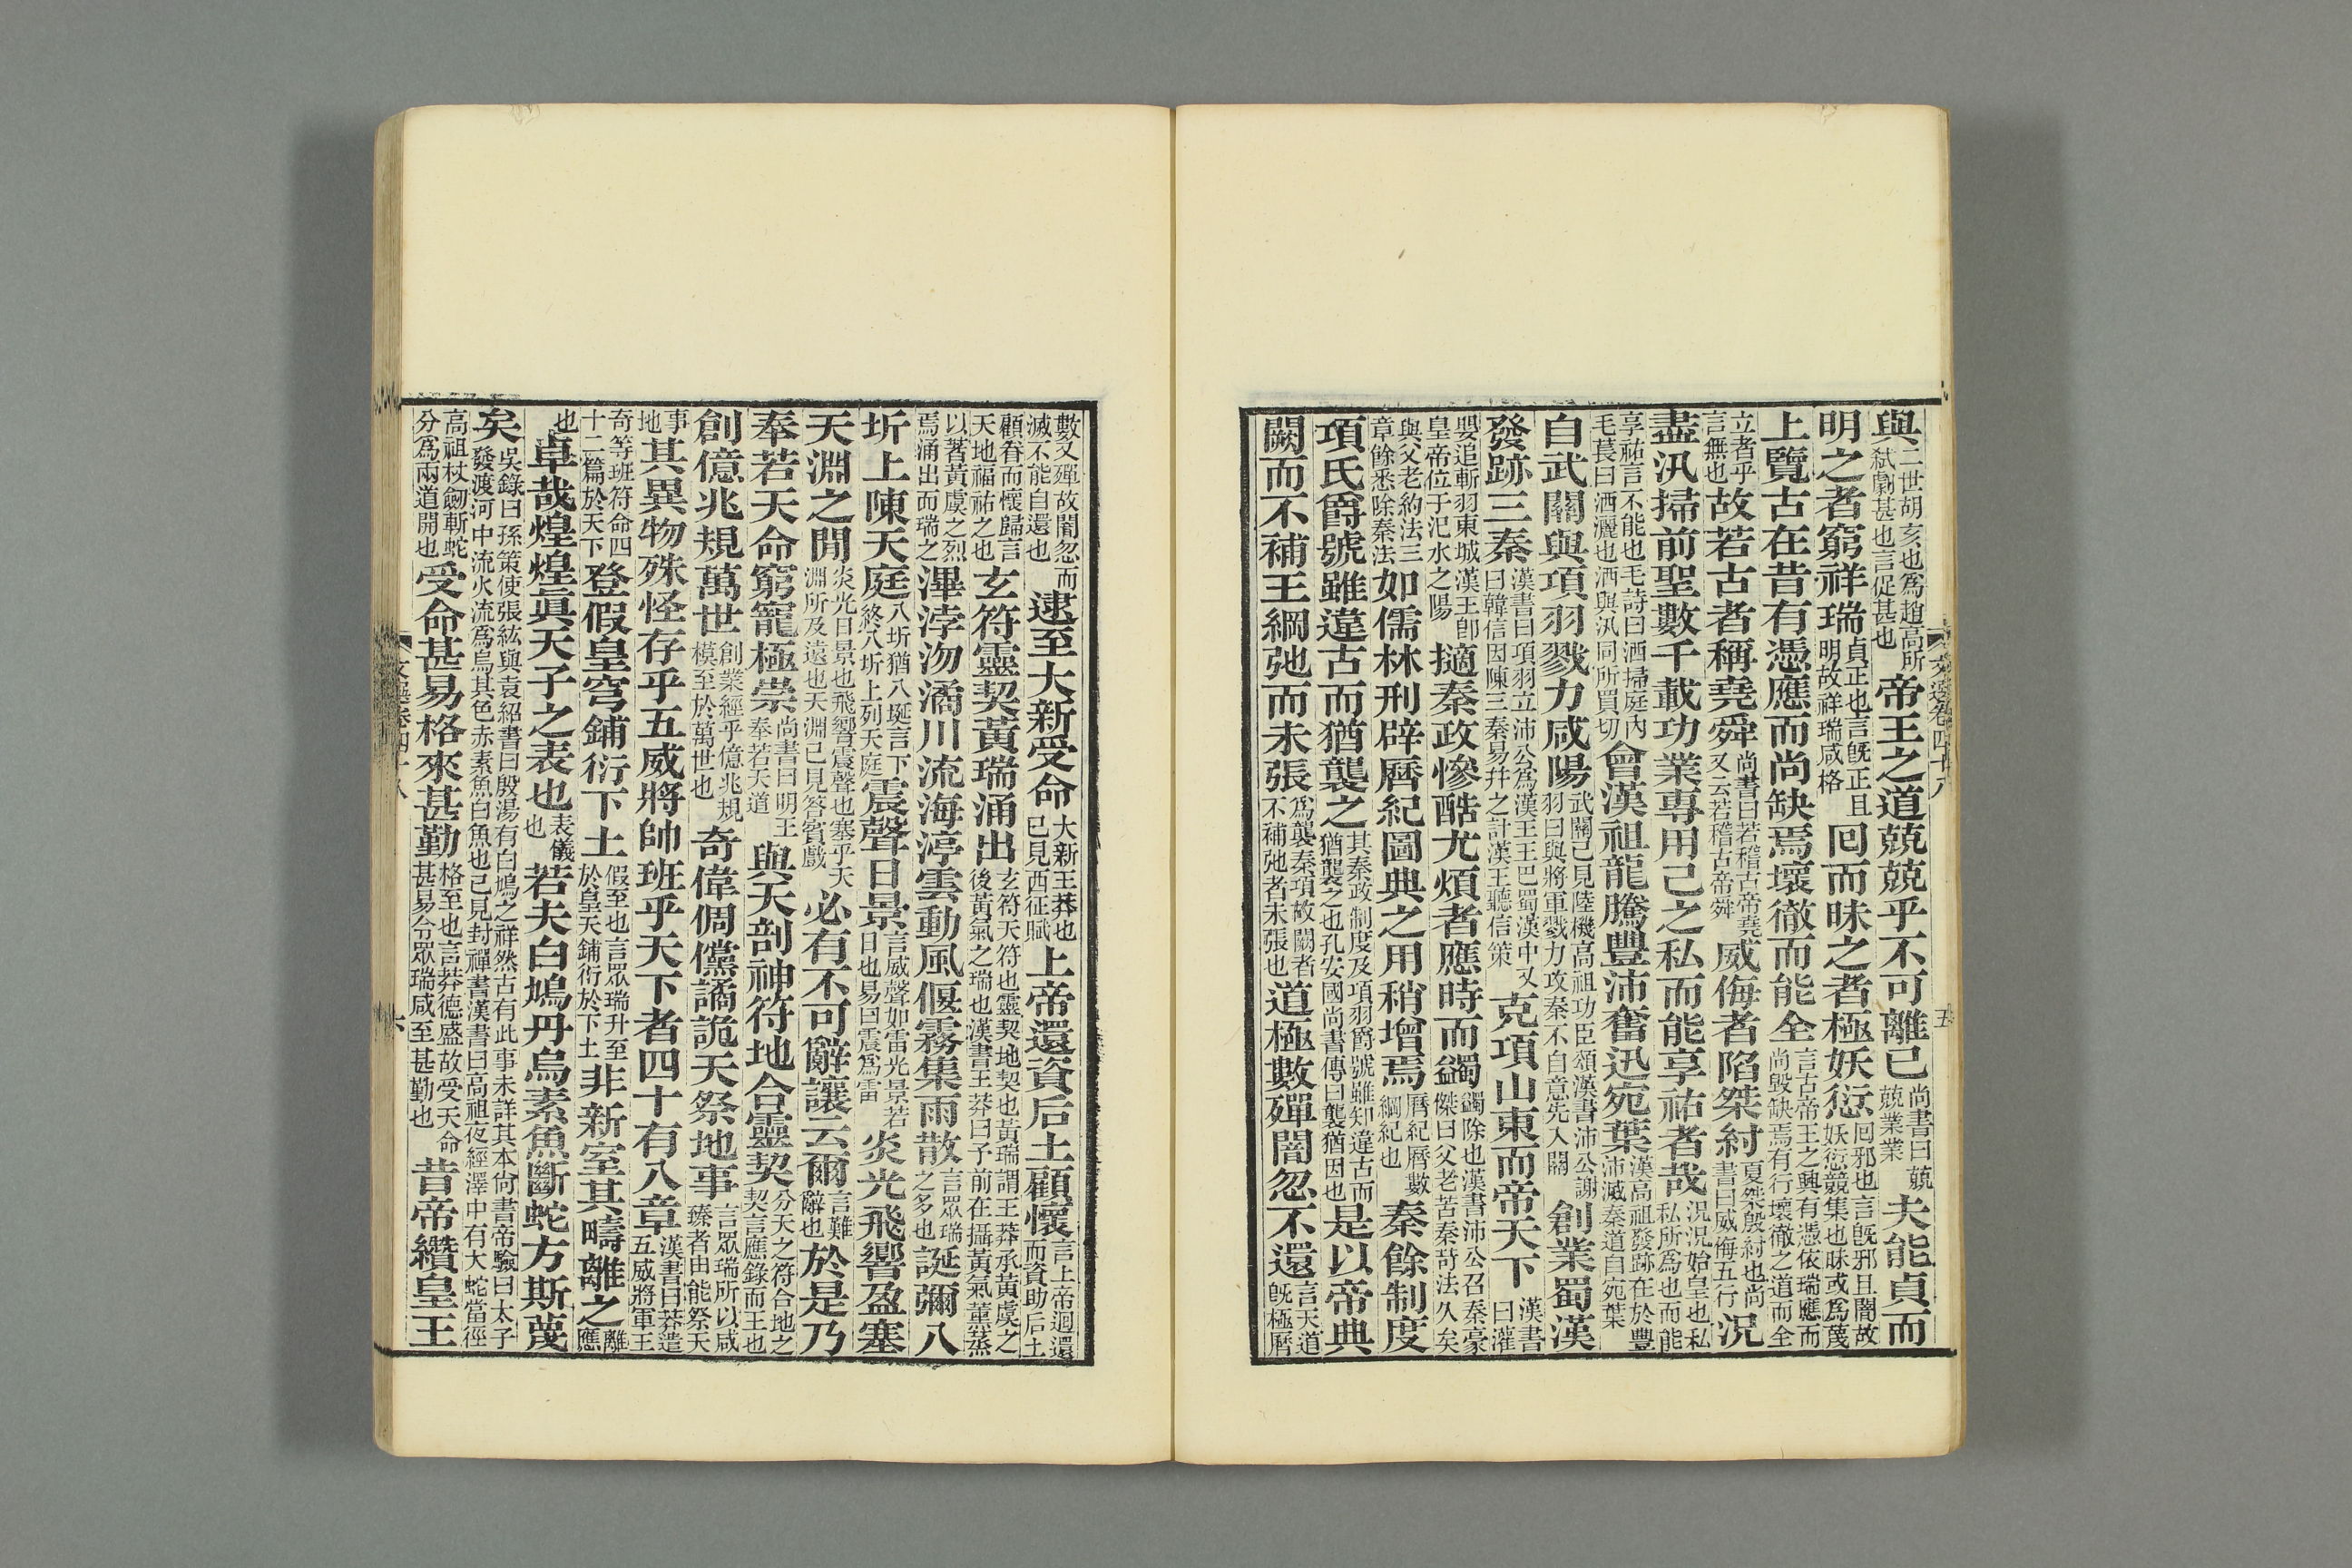 與二世胡亥也爲趙高所弑劇甚也言促甚也帝王之道兢兢乎不可離已尚書曰兢兢業業夫能貞而
明之者窮祥瑞貞正也言旣正且明故祥瑞咸格回而昧之者極妖愆回邪也言旣邪且闇故妖愆競集也昧或爲蔑
上覽古在昔有憑應而尚缺焉壞徹而能全言古帝王之興有憑依瑞應而尚毀缺焉有行壞徹之道而全
立者乎言無也故若古者稱堯舜尚書曰若稽古帝堯又云若稽古帝舜威侮者陷桀紂夏桀殷紂也尚書曰威侮五行況
盡汛掃前聖數千載功業專用己之私而能享祐者哉況況始皇也私私所爲也而能
享祐言不能也毛詩曰洒掃庭內毛萇曰洒灑也洒與汛同所買切會漢祖龍騰豐沛奮迅宛葉漢高祖發跡在於豐沛滅秦道自宛葉
自武關與項羽戮力咸陽武關已見陸機高祖功臣頌漢書沛公謝羽曰與將軍戮力攻秦不自意先入關創業蜀漢
發跡三秦漢書曰項羽立沛公爲漢王王巴蜀漢中又曰韓信因陳三秦易幷之計漢王聽信策克項山東而帝天下漢書曰灌
嬰追斬羽東城漢王卽皇帝位于汜水之陽擿秦政慘酷尤煩者應時而蠲蠲除也漢書沛公召秦豪傑曰父老苦秦苛法久矣
與父老約法三章餘悉除秦法如儒林刑辟曆紀圖典之用稍增焉曆紀曆數綱紀也秦餘制度
項氏爵號雖違古而猶襲之其秦政制度及項羽爵號雖知違古而猶襲之也孔安國尚書傳曰襲猶因也是以帝典
闕而不補王綱弛而未張爲襲秦項故闕者不補弛者未張也道極數殫闇忽不還言天道旣極曆
文選卷四十八
五
數又殫故闇忽而滅不能自還也逮至大新受命大新王莽也已見西征賦上帝還資后土顧懷言上帝迴還而資助后土
顧眷而懷歸言天地福祐之也玄符靈契黃瑞涌出玄符天符也靈契地契也黃瑞謂王莽承黃虞之後黃氣之瑞也漢書王莽曰予前在攝黃氣薰蒸
以著黃虞之烈焉涌出而瑞之滭浡沕潏川流海渟雲動風偃霧集雨散言眾瑞之多也誕彌八
圻上陳天庭八圻猶八埏言下終八圻上列天庭震聲日景言威聲如雷光景若日也易曰震爲雷炎光飛響盈塞
天淵之閒炎光日景也飛響震聲也塞乎天淵所及遠也天淵已見答賓戲必有不可辭讓云爾言難辭也於是乃
奉若天命窮寵極崇尚書曰明王奉若天道與天剖神符地合靈契分天之符合地之契言應錄而王也
創億兆規萬世創業經乎億兆規模至於萬世也奇偉倜儻譎詭天祭地事言眾瑞所以咸臻者由能祭天
事地其異物殊怪存乎五威將帥班乎天下者四十有八章漢書曰莽遣五威將軍王
奇等班符命四十二篇於天下登假皇穹鋪衍下土假至也言眾瑞升至於皇天鋪衍於下土非新室其疇離之離應
也卓哉煌煌眞天子之表也表儀也若夫白鳩丹烏素魚斷蛇方斯蔑
矣吳錄曰孫策使張紘與袁紹書曰殷湯有白鳩之祥然古有此事未詳其本尚書帝驗曰太子發渡河中流火流爲烏其色赤素魚白魚也已見封禪書漢書曰高祖夜經澤中有大蛇當徑
高祖杖劒斬蛇分爲兩道開也受命甚易格來甚勤格至也言莽德盛故受天命甚易今眾瑞咸至甚勤也昔帝纘皇王
文選卷四十八
六